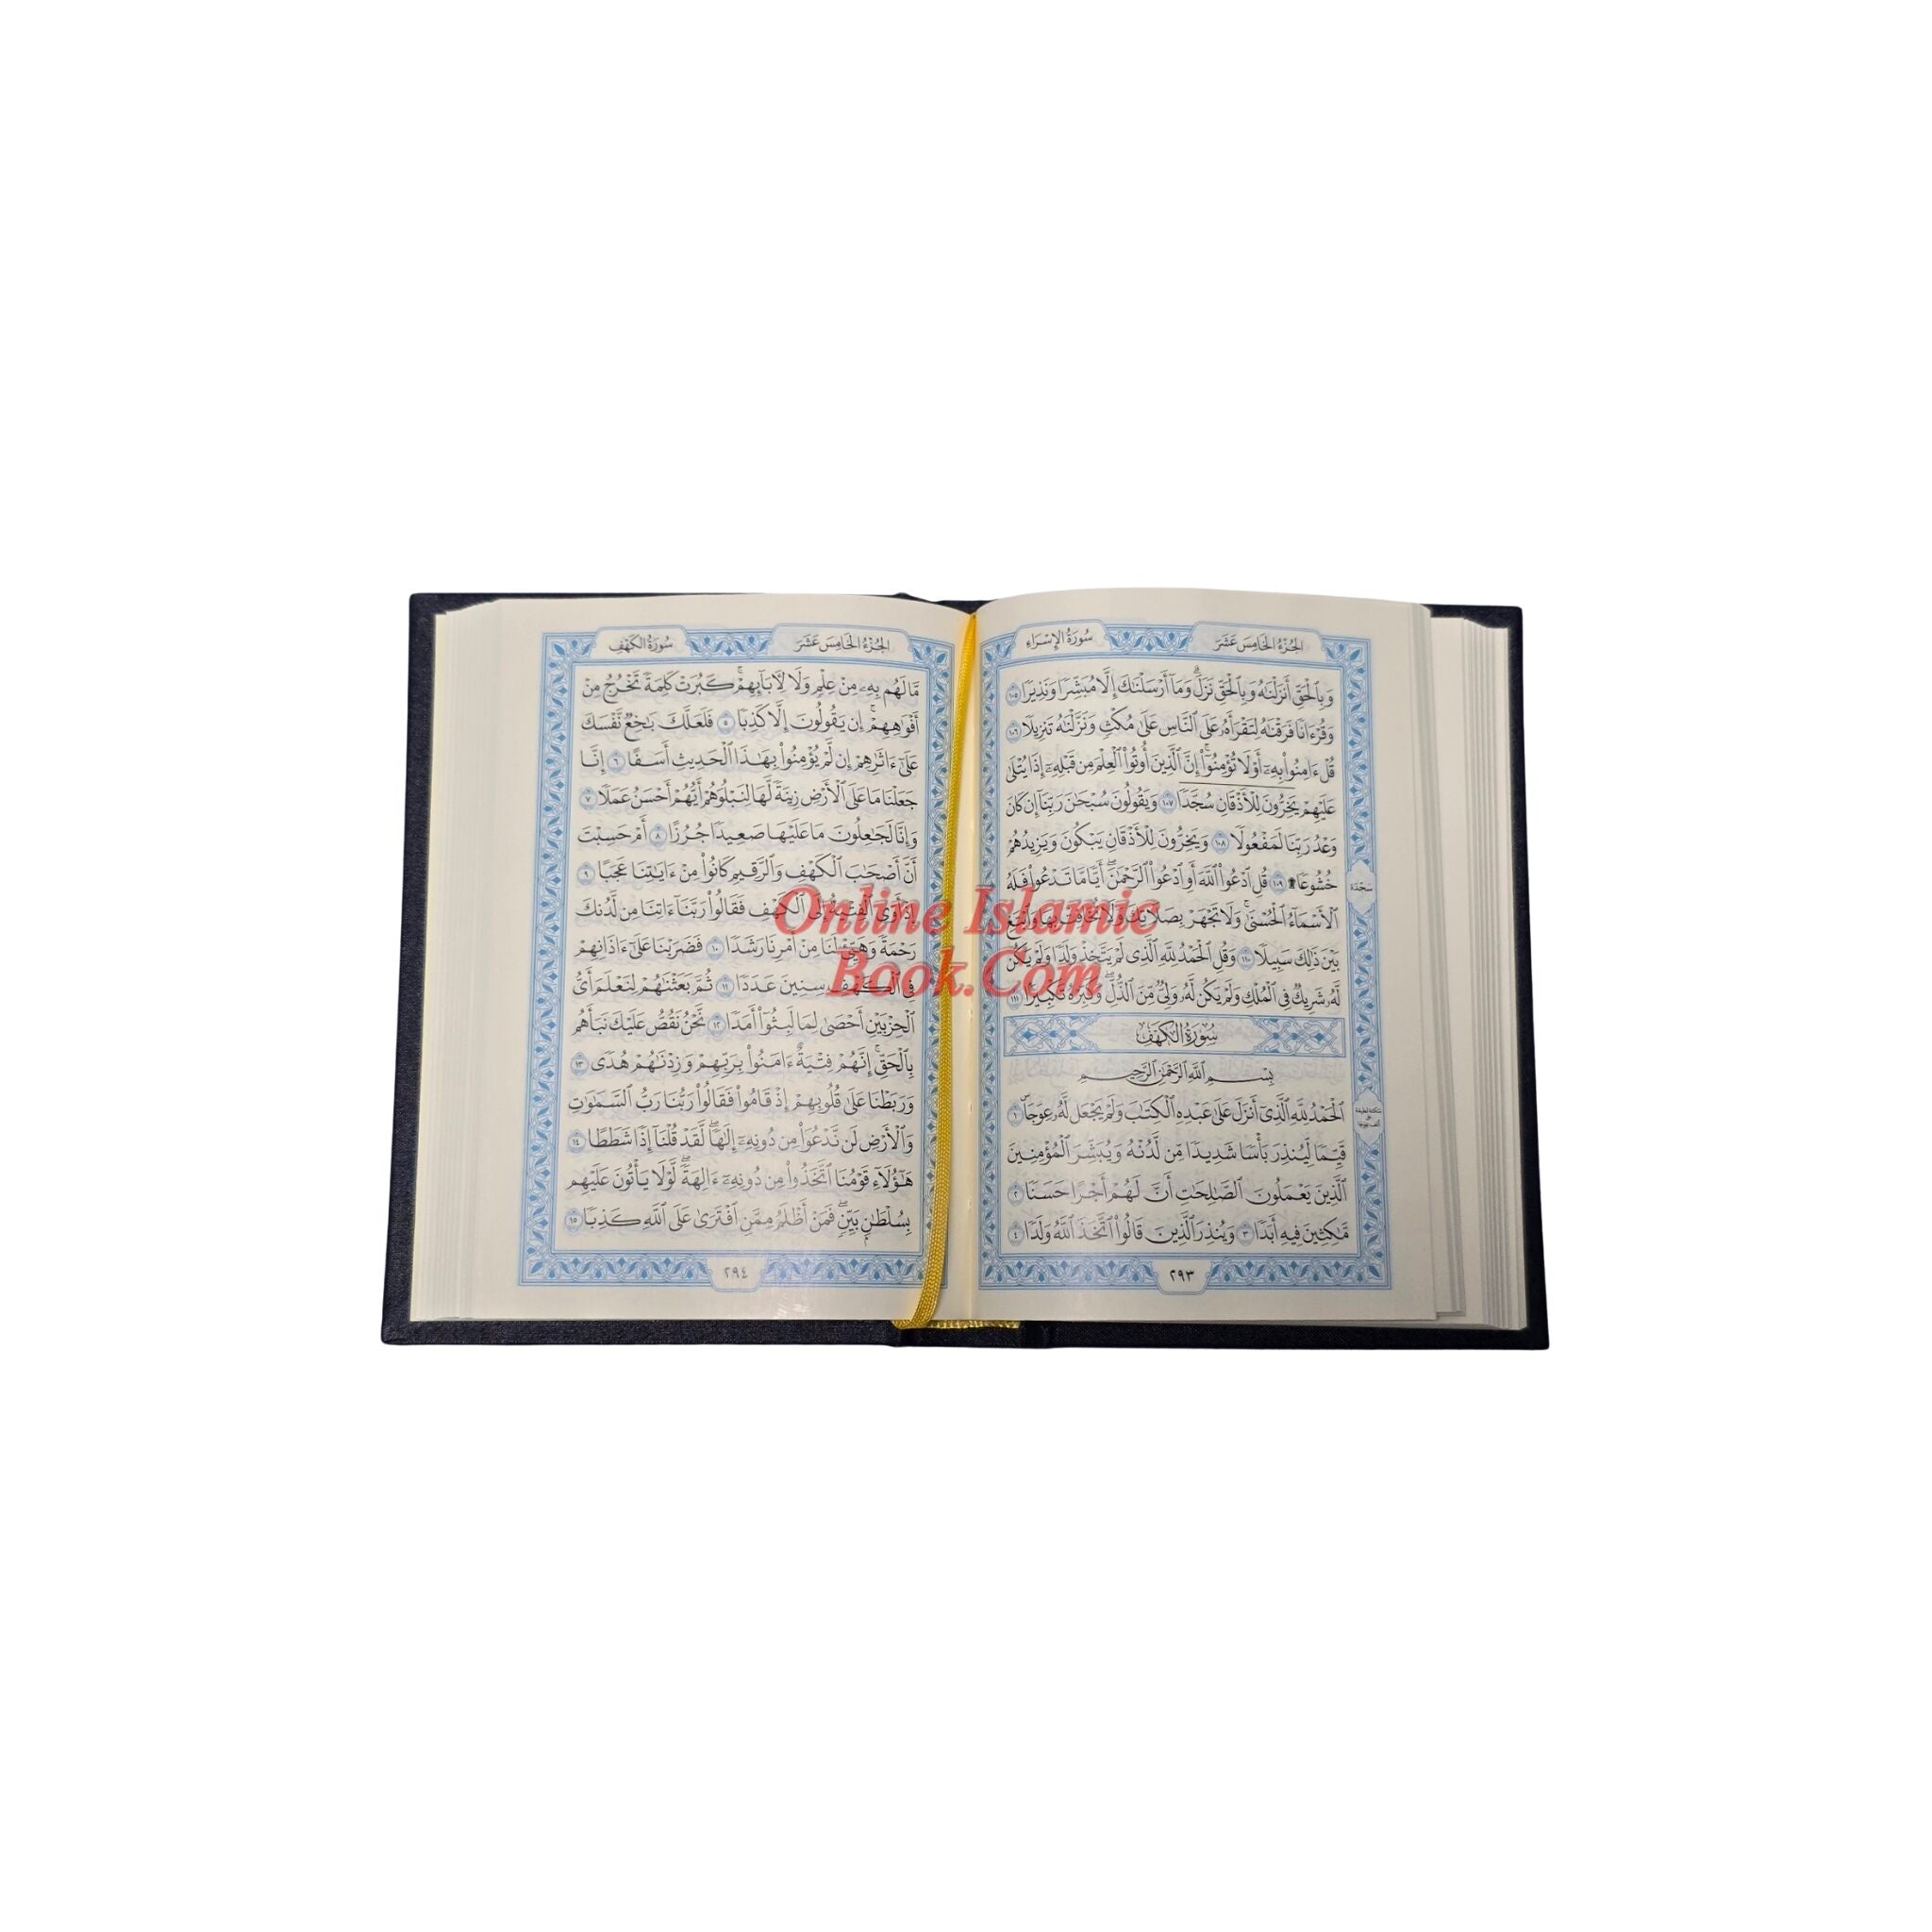 الجُزْءُ الخَامِسَ عَشَرَ
سُورَةُ الإِسْرَاءِ
وَبِٱلْحَقِّ أَنزَلْنَٰهُ وَبِٱلْحَقِّ نَزَلَۗ وَمَآ أَرْسَلْنَٰكَ إِلَّا مُبَشِّرًا وَنَذِيرًا ١٠٥
وَقُرْءَانًا فَرَقْنَٰهُ لِتَقْرَأَهُۥ عَلَى ٱلنَّاسِ عَلَىٰ مُكْثٍ وَنَزَّلْنَٰهُ تَنزِيلًا ١٠٦
قُلْ ءَامِنُوا۟ بِهِۦٓ أَوْ لَا تُؤْمِنُوٓا۟ۚ إِنَّ ٱلَّذِينَ أُوتُوا۟ ٱلْعِلْمَ مِن قَبْلِهِۦٓ إِذَا يُتْلَىٰ
عَلَيْهِمْ يَخِرُّونَ لِلْأَذْقَانِ سُجَّدًا ١٠٧ وَيَقُولُونَ سُبْحَٰنَ رَبِّنَآ إِن كَانَ
وَعْدُ رَبِّنَا لَمَفْعُولًا ١٠٨ وَيَخِرُّونَ لِلْأَذْقَانِ يَبْكُونَ وَيَزِيدُهُمْ
خُشُوعًا ۩ ١٠٩ قُلِ ٱدْعُوا۟ ٱللَّهَ أَوِ ٱدْعُوا۟ ٱلرَّحْمَٰنَۖ أَيًّا مَّا تَدْعُوا۟ فَلَهُ
سَجْدَة
ٱلْأَسْمَآءُ ٱلْحُسْنَىٰۚ وَلَا تَجْهَرْ بِصَلَاتِكَ وَلَا تُخَافِتْ بِهَا وَٱبْتَغِ
بَيْنَ ذَٰلِكَ سَبِيلًا ١١٠ وَقُلِ ٱلْحَمْدُ لِلَّهِ ٱلَّذِى لَمْ يَتَّخِذْ وَلَدًا وَلَمْ يَكُن
لَّهُۥ شَرِيكٌ فِى ٱلْمُلْكِ وَلَمْ يَكُن لَّهُۥ وَلِىٌّ مِّنَ ٱلذُّلِّۖ وَكَبِّرْهُ تَكْبِيرًۢا ١١١
سُورَةُ الكَهْفِ
بِسْمِ ٱللَّهِ ٱلرَّحْمَٰنِ ٱلرَّحِيمِ
ٱلْحَمْدُ لِلَّهِ ٱلَّذِىٓ أَنزَلَ عَلَىٰ عَبْدِهِ ٱلْكِتَٰبَ وَلَمْ يَجْعَل لَّهُۥ عِوَجَاۜ ١
قَيِّمًا لِّيُنذِرَ بَأْسًا شَدِيدًا مِّن لَّدُنْهُ وَيُبَشِّرَ ٱلْمُؤْمِنِينَ
ٱلَّذِينَ يَعْمَلُونَ ٱلصَّٰلِحَٰتِ أَنَّ لَهُمْ أَجْرًا حَسَنًا ٢
مَّٰكِثِينَ فِيهِ أَبَدًا ٣ وَيُنذِرَ ٱلَّذِينَ قَالُوا۟ ٱتَّخَذَ ٱللَّهُ وَلَدًا ٤
٢٩٣
الجُزْءُ الخَامِسَ عَشَرَ
سُورَةُ الكَهْفِ
مَّا لَهُم بِهِۦ مِنْ عِلْمٍ وَلَا لِءَابَآئِهِمْۚ كَبُرَتْ كَلِمَةً تَخْرُجُ مِنْ
أَفْوَٰهِهِمْۚ إِن يَقُولُونَ إِلَّا كَذِبًا ٥ فَلَعَلَّكَ بَٰخِعٌ نَّفْسَكَ
عَلَىٰٓ ءَاثَٰرِهِمْ إِن لَّمْ يُؤْمِنُوا۟ بِهَٰذَا ٱلْحَدِيثِ أَسَفًا ٦ إِنَّا
جَعَلْنَا مَا عَلَى ٱلْأَرْضِ زِينَةً لَّهَا لِنَبْلُوَهُمْ أَيُّهُمْ أَحْسَنُ عَمَلًا ٧
وَإِنَّا لَجَٰعِلُونَ مَا عَلَيْهَا صَعِيدًا جُرُزًا ٨ أَمْ حَسِبْتَ
أَنَّ أَصْحَٰبَ ٱلْكَهْفِ وَٱلرَّقِيمِ كَانُوا۟ مِنْ ءَايَٰتِنَا عَجَبًا ٩
إِذْ أَوَى ٱلْفِتْيَةُ إِلَى ٱلْكَهْفِ فَقَالُوا۟ رَبَّنَآ ءَاتِنَا مِن لَّدُنكَ
رَحْمَةً وَهَيِّئْ لَنَا مِنْ أَمْرِنَا رَشَدًا ١٠ فَضَرَبْنَا عَلَىٰٓ ءَاذَانِهِمْ
فِى ٱلْكَهْفِ سِنِينَ عَدَدًا ١١ ثُمَّ بَعَثْنَٰهُمْ لِنَعْلَمَ أَىُّ
ٱلْحِزْبَيْنِ أَحْصَىٰ لِمَا لَبِثُوٓا۟ أَمَدًا ١٢ نَّحْنُ نَقُصُّ عَلَيْكَ نَبَأَهُم
بِٱلْحَقِّۚ إِنَّهُمْ فِتْيَةٌ ءَامَنُوا۟ بِرَبِّهِمْ وَزِدْنَٰهُمْ هُدًى ١٣
وَرَبَطْنَا عَلَىٰ قُلُوبِهِمْ إِذْ قَامُوا۟ فَقَالُوا۟ رَبُّنَا رَبُّ ٱلسَّمَٰوَٰتِ
وَٱلْأَرْضِ لَن نَّدْعُوَا۟ مِن دُونِهِۦٓ إِلَٰهًاۖ لَّقَدْ قُلْنَآ إِذًا شَطَطًا ١٤
هَٰٓؤُلَآءِ قَوْمُنَا ٱتَّخَذُوا۟ مِن دُونِهِۦٓ ءَالِهَةًۖ لَّوْلَا يَأْتُونَ عَلَيْهِم
بِسُلْطَٰنٍۭ بَيِّنٍۖ فَمَنْ أَظْلَمُ مِمَّنِ ٱفْتَرَىٰ عَلَى ٱللَّهِ كَذِبًا ١٥
٢٩٤
Online Islamic
Book.Com